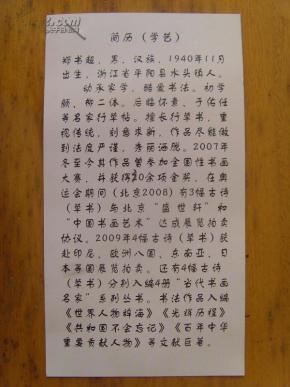 简历（学艺）
郑书超，男，汉族，1940年11月
出生，浙江省平阳县水头镇人。
幼承家学，酷爱书法。初学
颜，柳二体。后临怀素，于佑任
等名家行草帖。擅长行草书，重
视传统，刻意求新，作品尽能做
到法度严谨，秀丽洒脱。2007年
冬至今其作品曾参加全国性书画
大赛，并获得20余项金奖，在奥
运会期间（北京2008）有3幅古诗
（草书）与北京“盛世轩”和
“中国书画艺术”达成展览拍卖
协议。2009年4幅古诗（草书）获
赴印尼，欧洲八国，东南亚，日
本等国展览拍卖。还有4幅古诗
（草书）分别入编4册“当代书画
名家”系列丛书。书法作品入编
《世界人物辞海》《光辉历程》
《共和国不会忘记》《百年中华
重要贡献人物》等文献巨著。